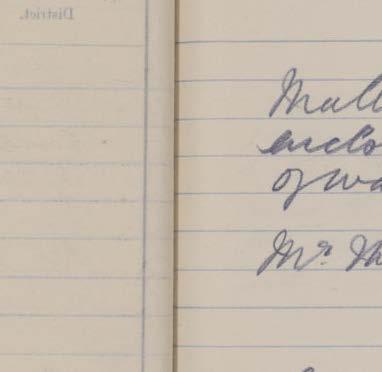 District.
Mall
enclo
of wa
Mr. Th